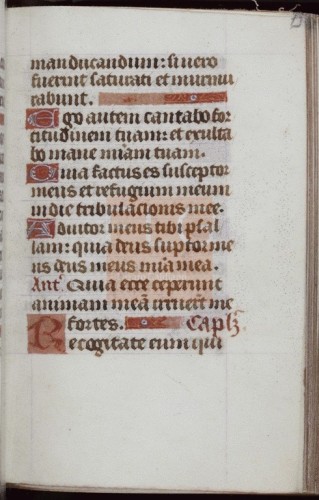 manducandum: si vero
fuerint saturati et murmu
rabunt.
Ego autem cantabo for
titudinem tuam: et exulta
bo mane miam tuam.
Quia factus es susceptor
meus et refugium meum
in die tribulacionis mee.
Adiutor meus tibi psal
lam: quia deus suptor me
us deus meus mia mea.
Ant. Quia ecce ceperunt
animam mea irruert me
fortes. Caplm
Recogitate eum qui